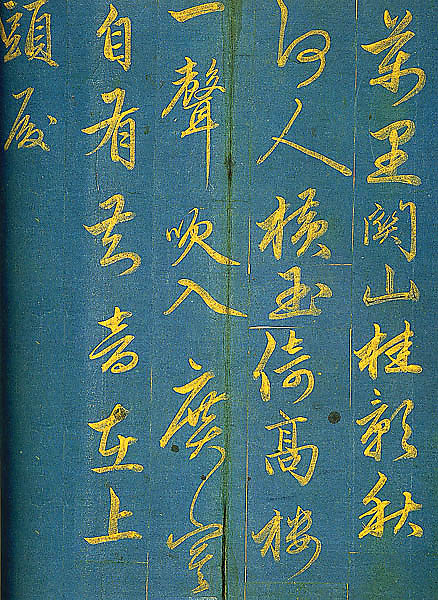 萬里關山桂影秋
何人橫玉倚高樓
一聲吹入廣寒
自有知音在上
頭殿